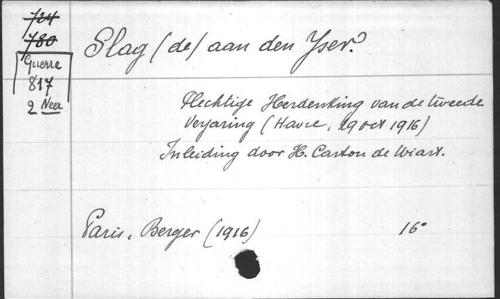 724
780
Guerre
817
2 Neer.
Slag (de) aan den Yser.
Plechtige Herdenking van de tweede
Verjaring (Havre, 29 oct 1916)
Inleiding door H. Carton de Wiart.
Paris, Berger (1916) 16°